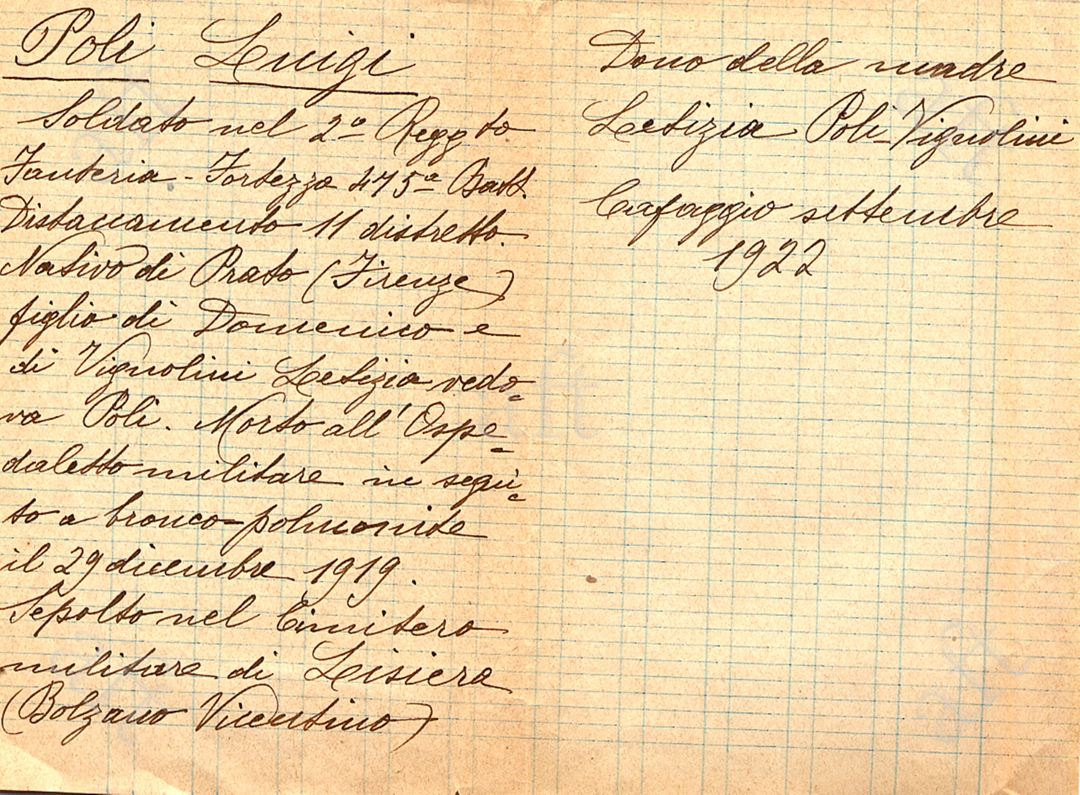 Poli Luigi
Soldato nel 2º Regg to.
Fanteria - Fortezza 475ª Batt.
Distaccamento 11 distretto.
Nativo di Prato (Firenze)
figlio di Domenico e
di Vignolini Letizia vedo-
va Poli. Morto all'Ospe-
daletto militare in segui-
to a bronco-polmonite
il 29 dicembre 1919.
Sepolto nel Cimitero
militare di Lisiera
(Bolzano Vicentino)
Dono della madre
Letizia Poli-Vignolini
Cafaggio settembre
1922